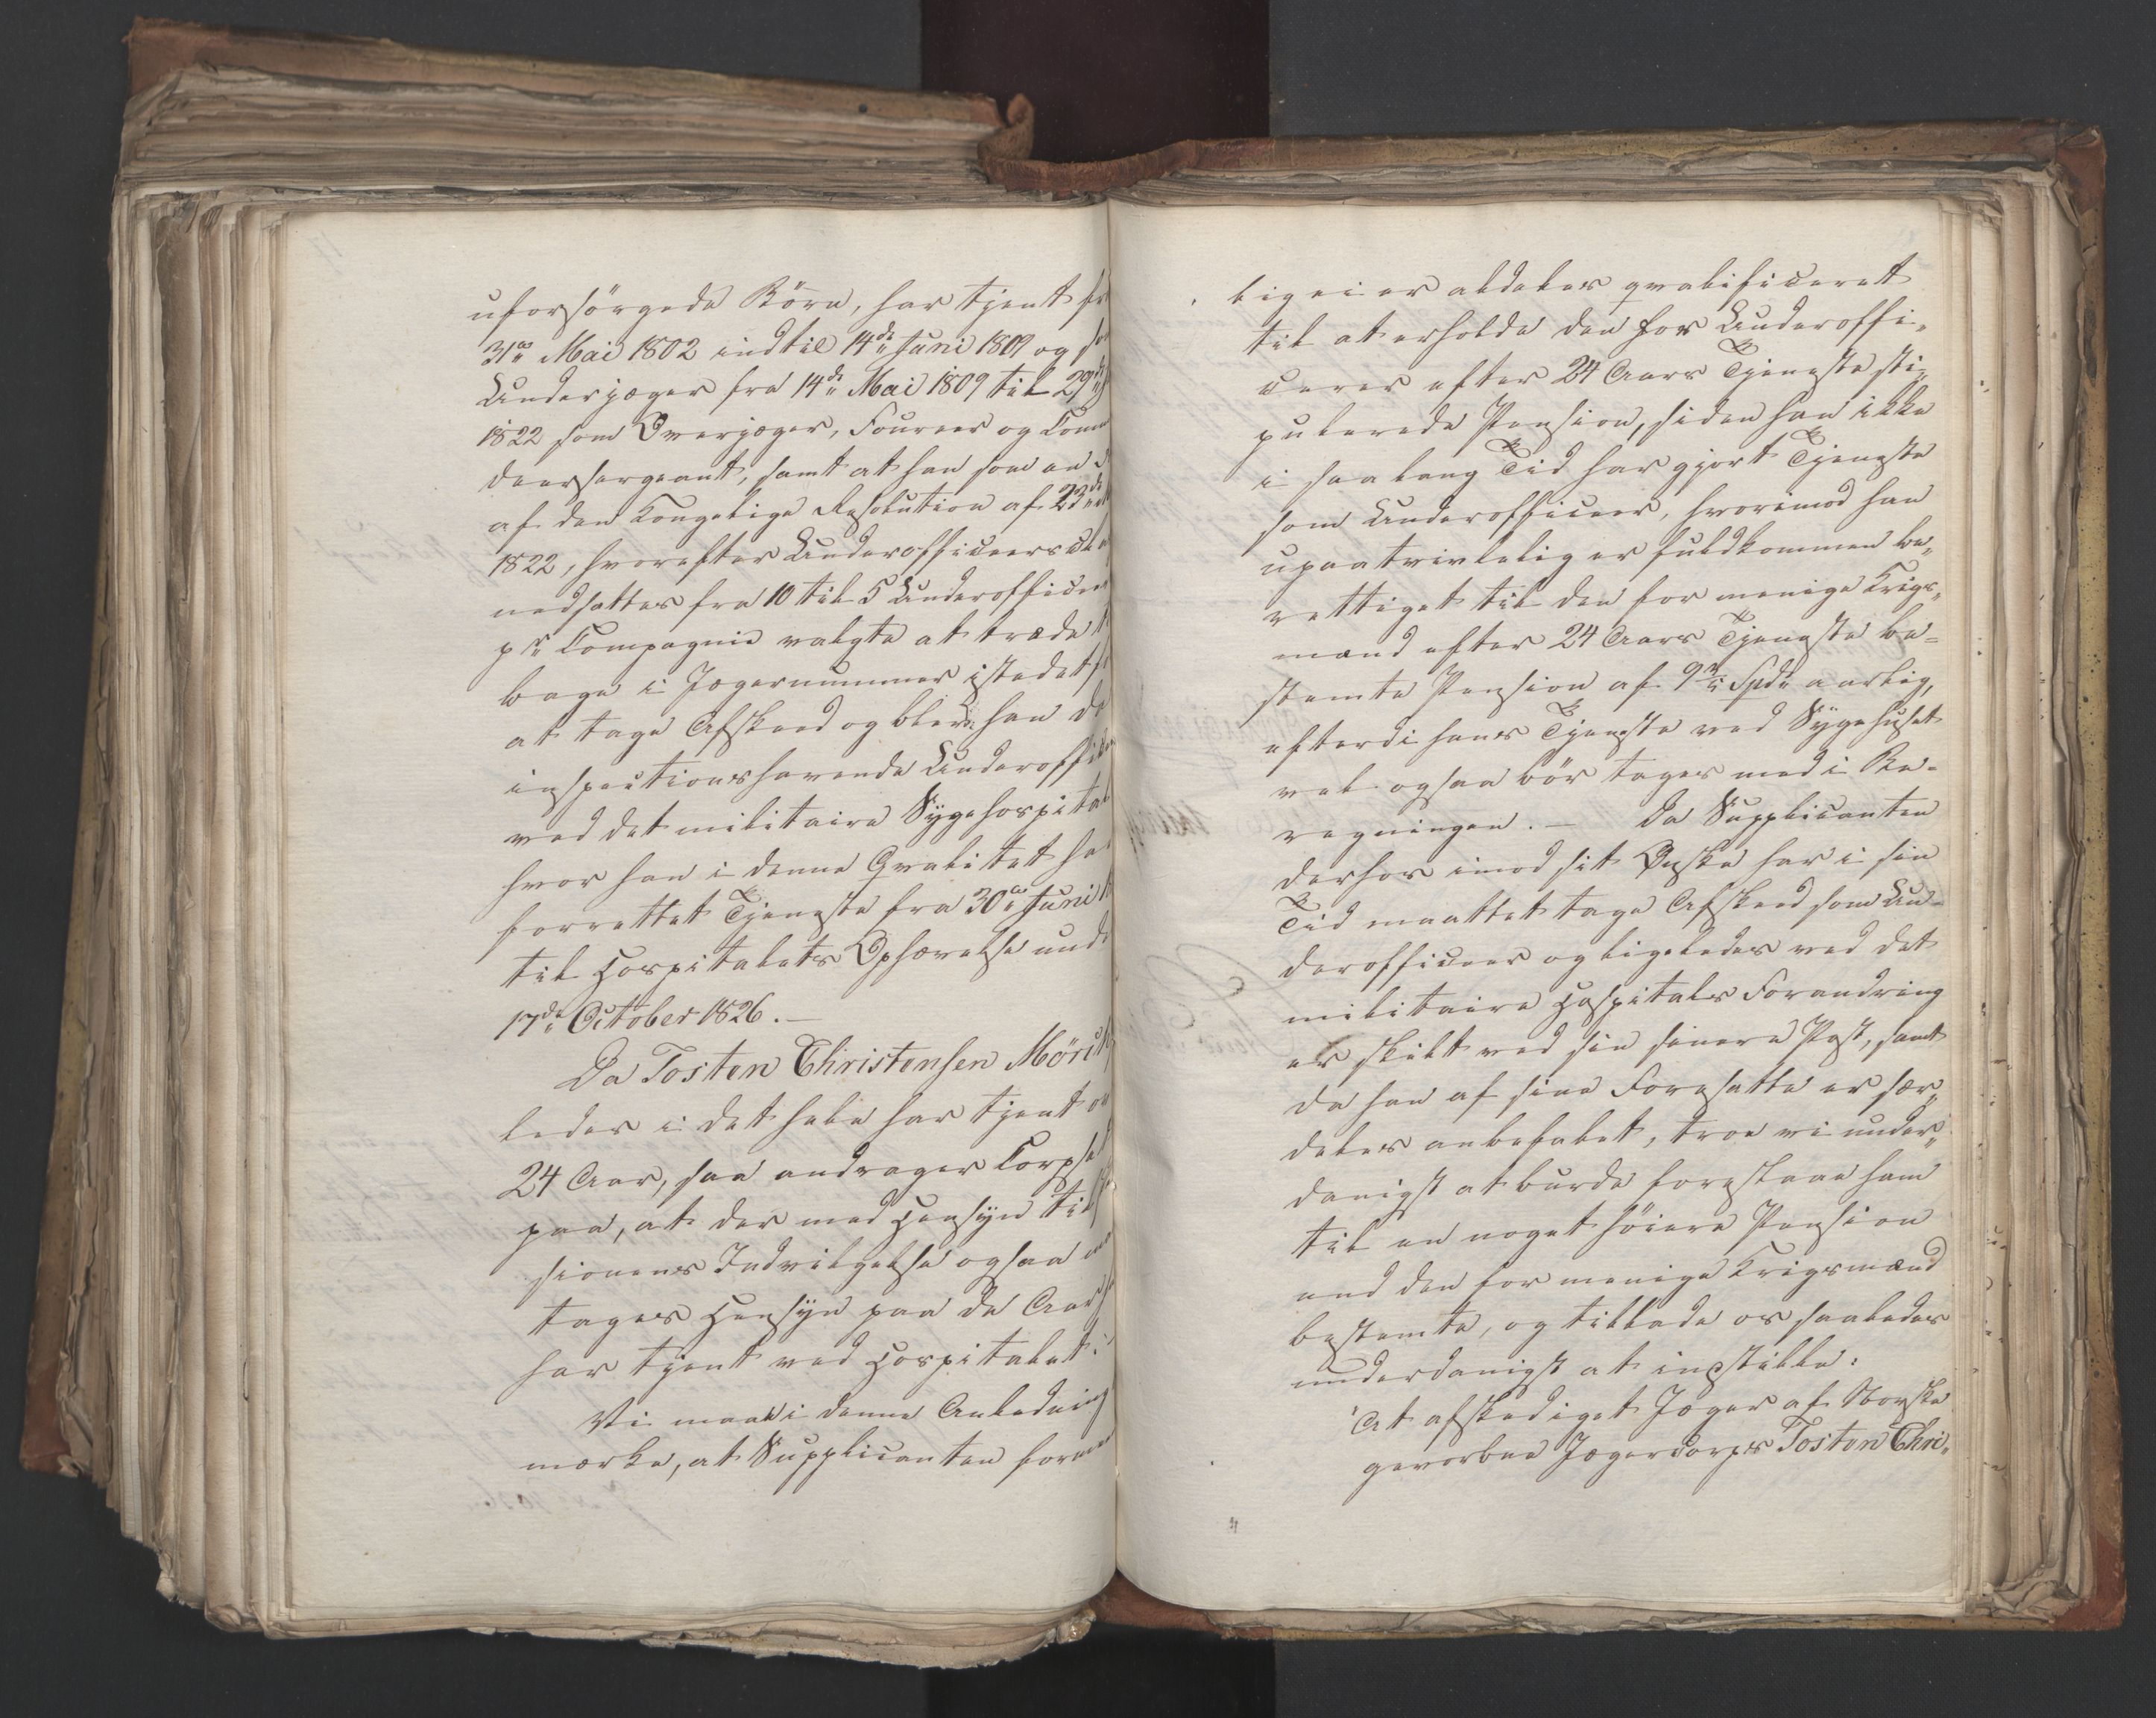 uforsörgede Börn, har tjent fra
31te Mai 1802 indtil 14de Juni 1809 og som
Underjæger fra 14de Mai 1809 til 29de
1822 som Overjæger, Foureer og Comm
deersergeant, samt at han som en
af den Kongelige Resolution af 23de
1822, hvorefter Underofficeers
nedsattes fra 10 til 5 Underofficer
pr Compagnie valgte at træde t
bage i Jægernummer istedetf
at tage Afskeed og blev han da
inspectionshavende Underoffi
ved det militaire Sygehospital
hvor han i denne Qvalitet ha
forrettet Tjeneste fra 30te Juni
til Hospitalets Ophævelse und
17de October 1826. —
Da Tosten Christensen Mörch
ledes i det hele har tjent o
24 Aar, saa andrager Corpset
paa, at der med Hensyn til
sionens Indvilgelse ogsaa m
tages Hensyn paa de Aar
har tjent ved Hospitalet.
Vi maae i denne Anledning
mærke, at Supplicanten forme
ligei er aldeles qvalificeret
til at erholde den for Underoffi-
cerer efter 24 Aars Tjeneste sti-
pulerede Pension, siden han ikke
i saa lang Tid har gjort Tjeneste
som Underofficeer, hvorimod han
upaatvivlelig er fuldkommen be-
rettiget til den for menige Krigs-
mænd efter 24 Aars Tjeneste be-
stemte Pension af Spd aarlig,
efterdi hans Tjeneste ved Sygehuset
vel ogsaa bör tages med i Be-
regningen. — Da Supplicanten
derhos imod sit Ønske har i sin
Tid maattet tage Afskeed som Un-
derofficeer og ligeledes ved det
militaire Hospitals Forandring
er skilt ved sin senere Post, samt
da han af sine Foresatte er sær-
deles anbefalet, troe vi under-
danigst at burde foreslaae ham
til en noget höiere Pension
end den for menige Krigsmænd
bestemte, og tillade os saaledes
underdanigst at indstille:
At afskediget Jæger af Norske
gevorbne Jægercorps Tosten Chri-